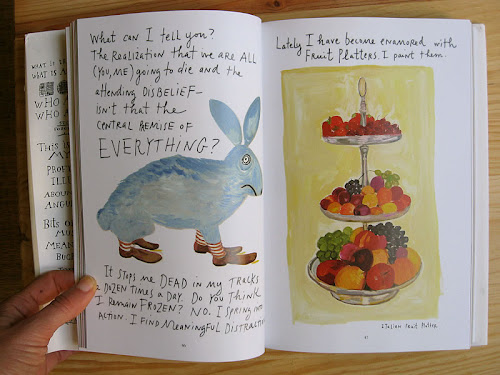 What can I tell you?
The REALIZATION that we are ALL
(you, me) going to die and the
attending DISBELIEF—
isn't that the
CENTRAL PREMISE OF
EVERYTHING?
It stops me DEAD in my TRACKS
a DOZEN times a DAY. Do you think
I REMAIN FROZEN? NO. I SPRING into
action. I find meaningful Distraction
Lately I have become enamored with
Fruit Platters. I paint them.
Italian fruit Platter
WHAT IS
WHO
WHO
This is
ILL
ANGU
Bits of
MEAN